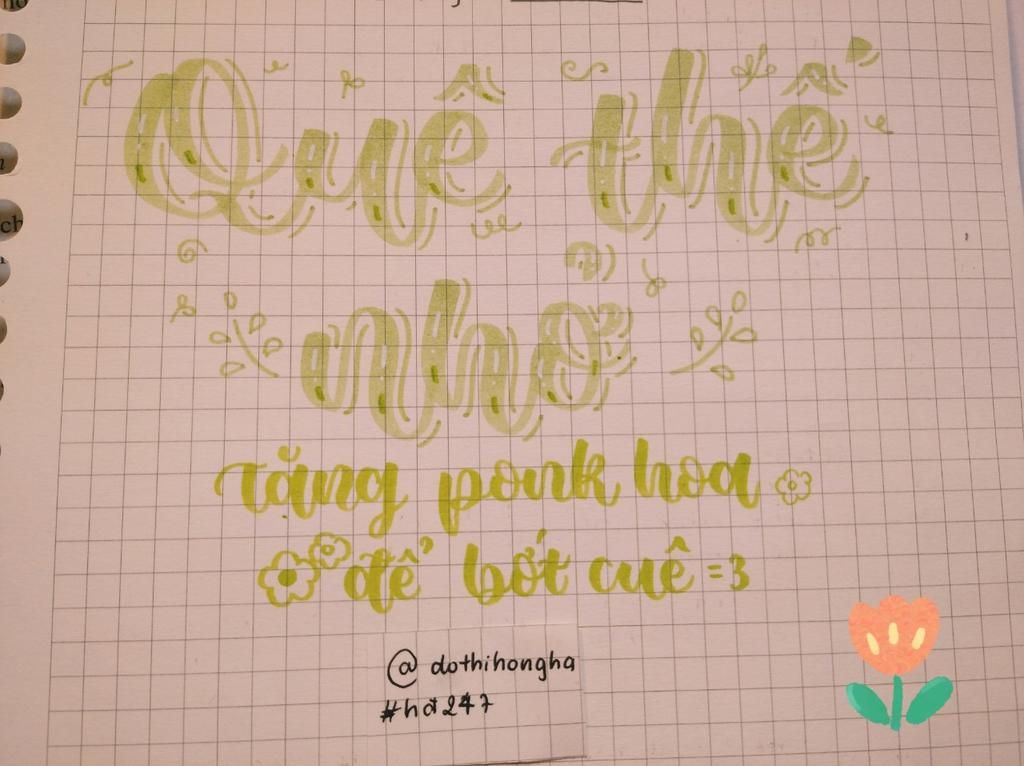 Quê thế
nhờ
tặng ponk hoa
để bớt cuê =3
@dothihongha
#hđ247
ch